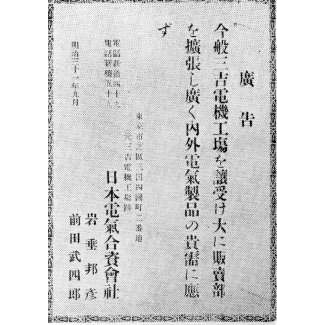 廣告
今般三吉電機工塲を讓受け大に販賣部
を擴張し廣く內外電氣製品の貴需に應
ず
東京市芝區三田四國町二番地
元三吉電機工塲跡
日本電氣合資會社
岩垂邦彥
前田武四郎
電話新橋
明治三十一年九月